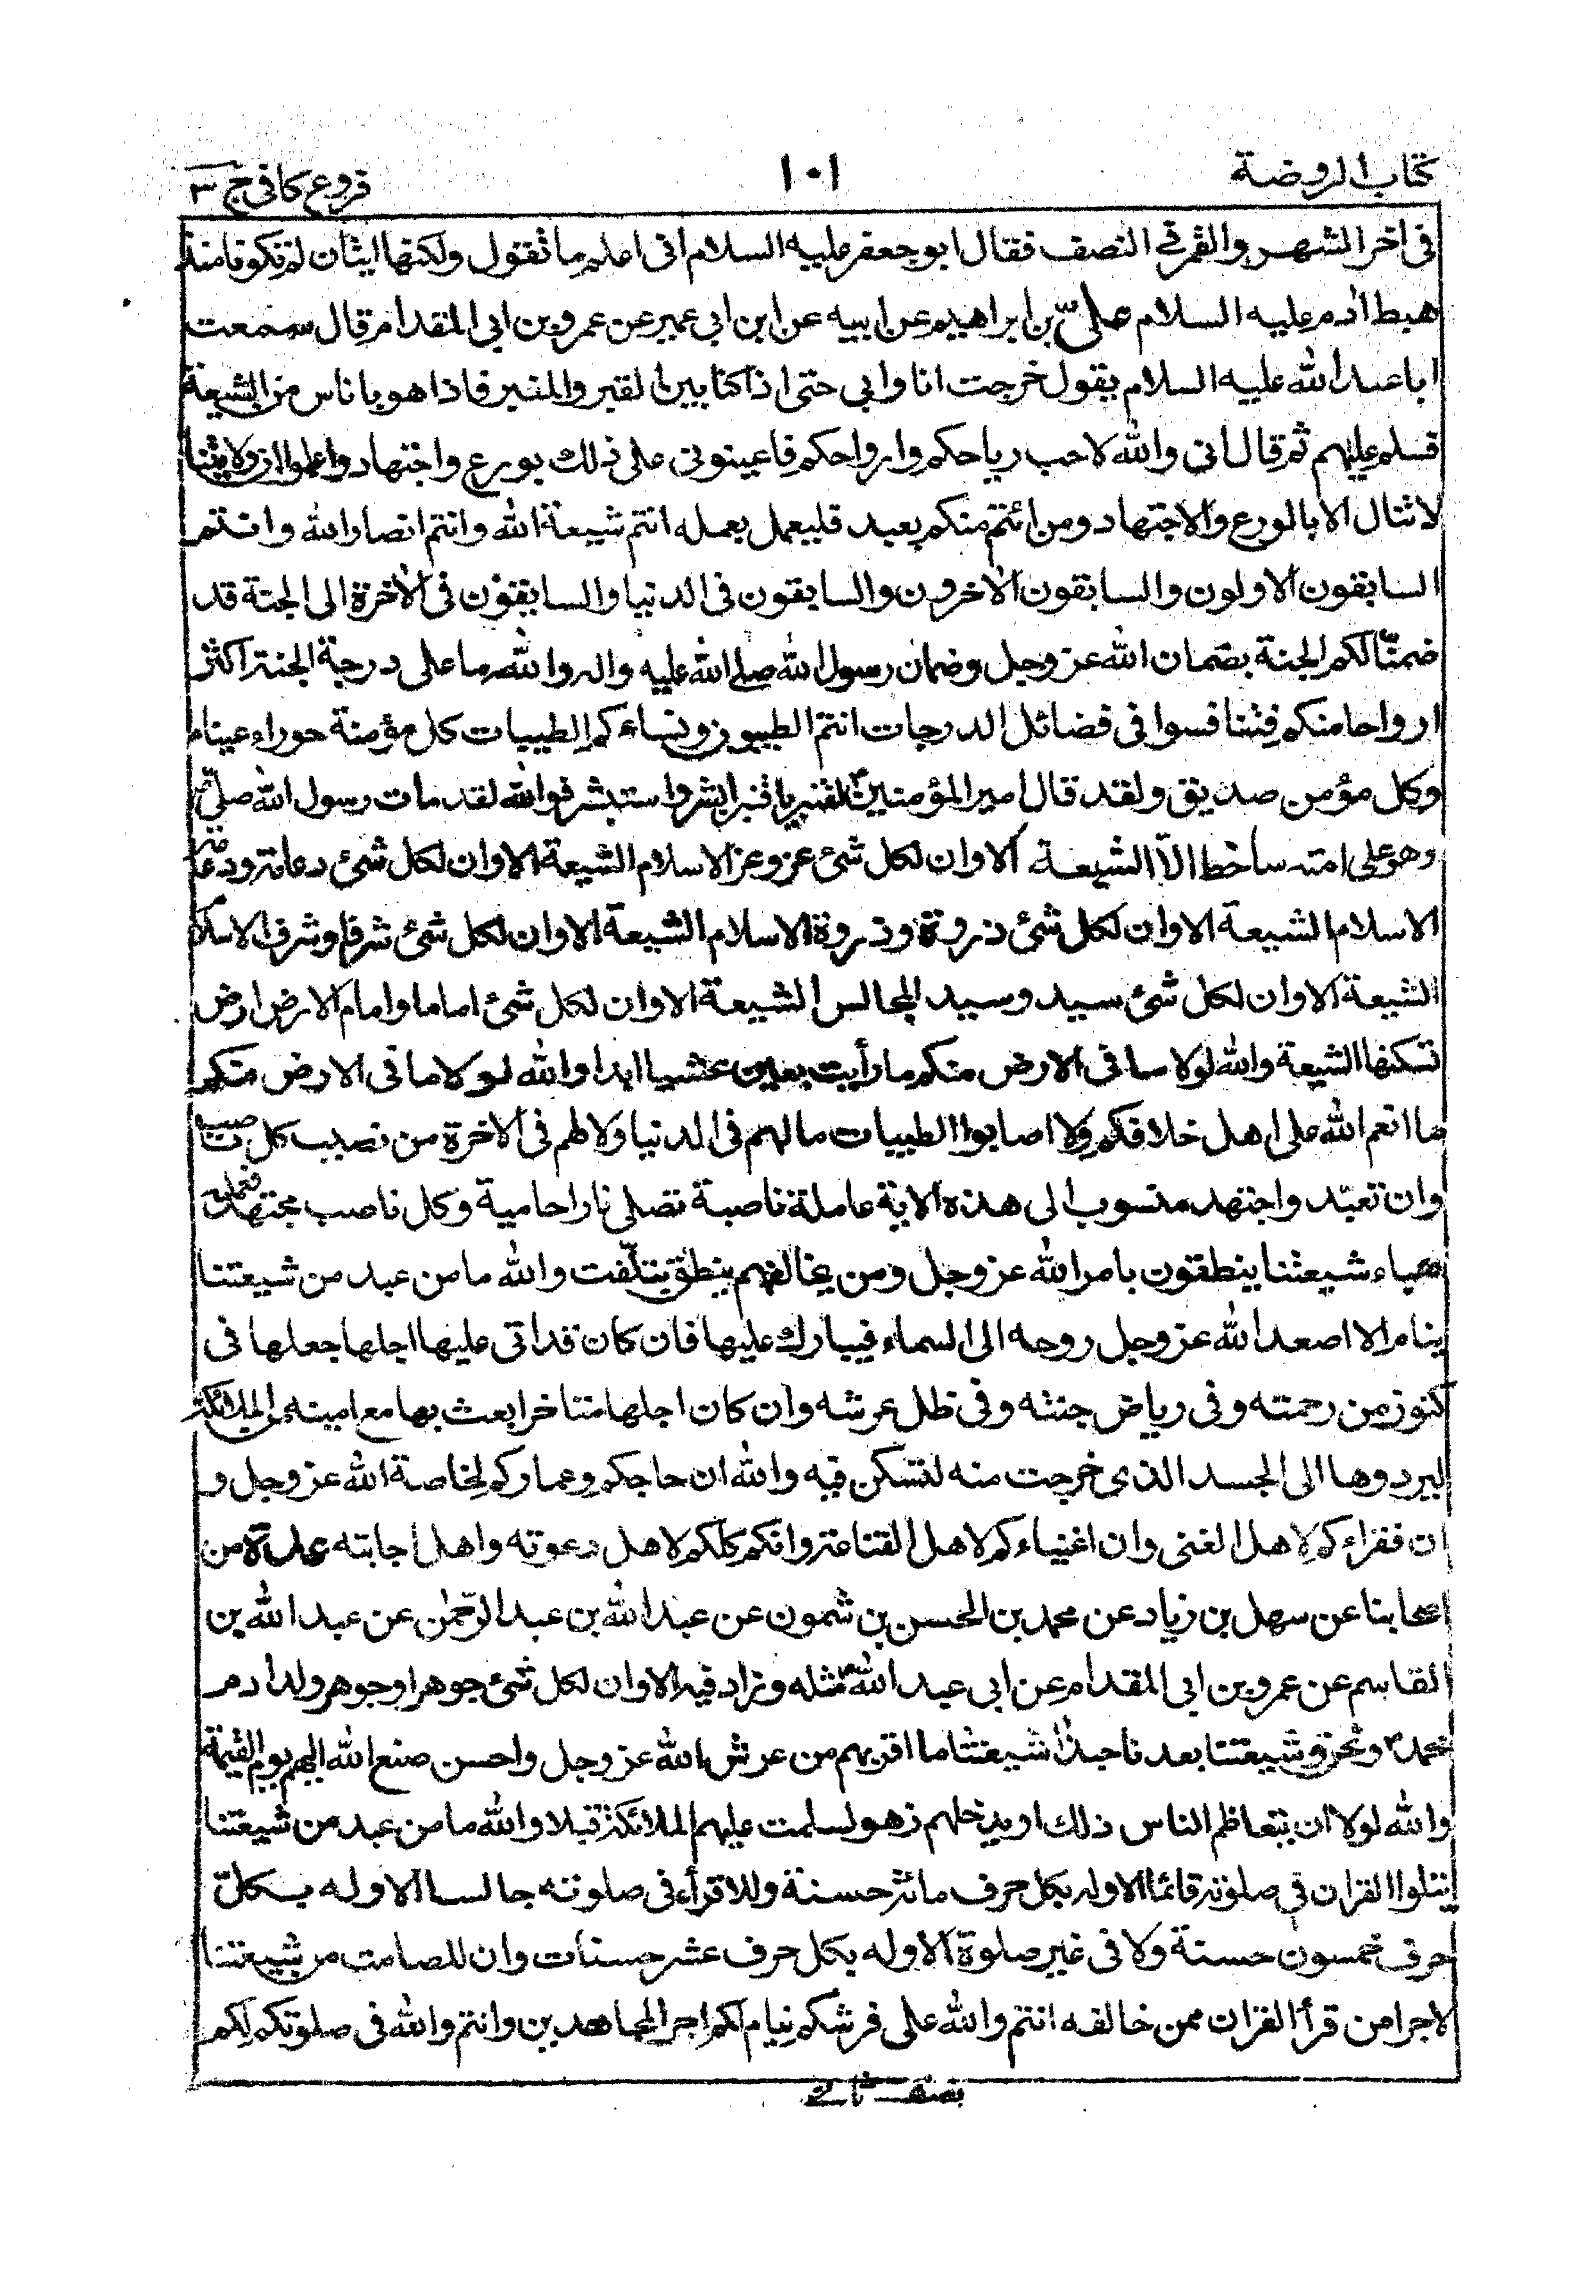 كتاب الروضة ١٠١ فروع كافى ج ٣
فى اخر الشهر والقمر فى النصف فقال ابو جعفر عليه السلام انى اعلم ما تقول ولكنها ايتان لم تكونا منذ
هبط ادم عليه السلام علىّ بن ابراهيم عن ابيه عن ابن ابى عمير عن عمرو بن ابى المقدام قال سمعت
ابا عبد الله عليه السلام يقول خرجت انا وابى حتى اذا كنا بين القبر والمنبر فاذا هو باناس من الشيعة
فسلم عليهم ثم قال انى والله لاحب رياحكم وارواحكم فاعينونى على ذلك بورع واجتهاد واعلموا ان ولايتنا
لا تنال الا بالورع والاجتهاد ومن ائتم منكم بعبد فليعمل بعمله انتم شيعة الله وانتم انصار الله وانتم
السابقون الاولون والسابقون الاخرون والسابقون فى الدنيا والسابقون فى الاخرة الى الجنة قد
ضمنّا لكم الجنة بضمان الله عز وجل وضمان رسول الله صلى الله عليه واله والله ما على درجة الجنة اكثر
ارواحا منكم فتنافسوا فى فضائل الدرجات انتم الطيبون ونساءكم الطيبات كل مؤمنة حوراء عيناء
وكل مؤمن صديق ولقد قال امير المؤمنين ع لقنبر يا قنبر ابشر واستبشر فوالله لقد مات رسول الله صلى
وهو على امته ساخط الاّ الشيعة الا وان لكل شئ عز وعز الاسلام الشيعة الا وان لكل شئ دعامة ودعامة
الاسلام الشيعة الا وان لكل شئ ذروة وذروة الاسلام الشيعة الا وان لكل شئ شرفا وشرف الاسلام
الشيعة الا وان لكل شئ سيد وسيد المجالس الشيعة الا وان لكل شئ اماما وامام الارض ارض
تسكنها الشيعة والله لولا ما فى الارض منكم ما رأيت بعين عشبا ابدا والله لولا ما فى الارض منكم
ما انعم الله على اهل خلافكم ولا اصابوا الطيبات ما لهم فى الدنيا ولا لهم فى الاخرة من نصيب كل ناصب
وان تعبّد واجتهد منسوب الى هذه الاية عاملة ناصبة تصلى نارا حامية وكل ناصب مجتهد فعمله
هباء شيعتنا ينطقون بامر الله عز وجل ومن يخالفهم ينطق بتلّفت والله ما من عبد من شيعتنا
ينام الا اصعد الله عز وجل روحه الى السماء فيبارك عليها فان كان قد اتى عليها اجلها جعلها فى
كنوز من رحمته وفى رياض جنته وفى ظل عرشه وان كان اجلها متاخرا بعث بها مع امينه من الملائكة
ليردوها الى الجسد الذى خرجت منه لتسكن فيه والله ان حاجكم وعماركم لخاصة الله عز وجل و
ان فقراءكم لاهل الغنى وان اغنياءكم لاهل القناعة وانكم كلكم لاهل دعوته واهل اجابته عدة من
اصحابنا عن سهل بن زياد عن محمد بن الحسن بن شمون عن عبد الله بن عبد الرّحمٰن عن عبد الله بن
القاسم عن عمرو بن ابى المقدام عن ابى عبد الله ع مثله وزاد فيه الا وان لكل شئ جوهرا وجوهر ولد ادم
محمد ص ونحن وشيعتنا بعدنا حبذا شيعتنا ما اقربهم من عرش الله عز وجل واحسن صنع الله اليهم يوم القيمة
والله لولا ان يتعاظم الناس ذلك او يدخلهم زهو لسلمت عليهم الملائكة قبلا والله ما من عبد من شيعتنا
يتلوا القران فى صلوته قائما الا وله بكل حرف مائة حسنة وللاقرأ فى صلوته جالسا الا وله بكلّ
حرف خمسون حسنة ولا فى غير صلوة الا وله بكل حرف عشر حسنات وان للصامت من شيعتنا
لاجر من قرأ القران ممن خالفه انتم والله على فرشكم نيام لكم اجر المجاهدين وانتم والله فى صلوتكم لكم